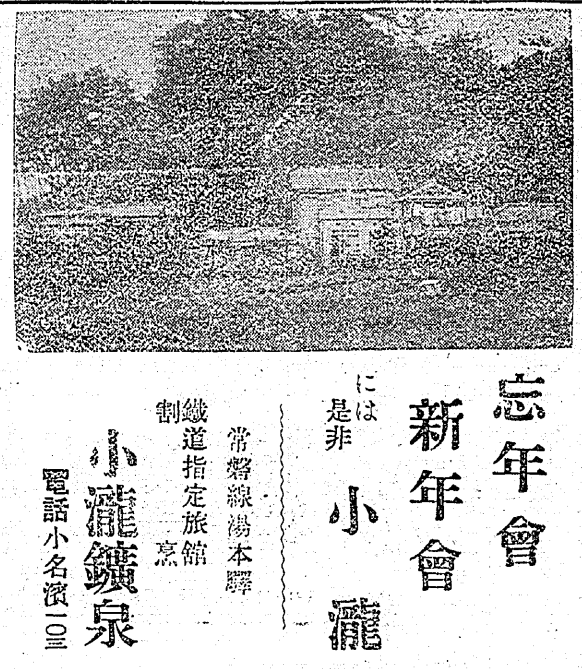 忘年會
新年會
には
是非
小瀧
常磐線湯本驛
鐵道指定旅館
割烹
小瀧鑛泉
電話小名濱一〇三